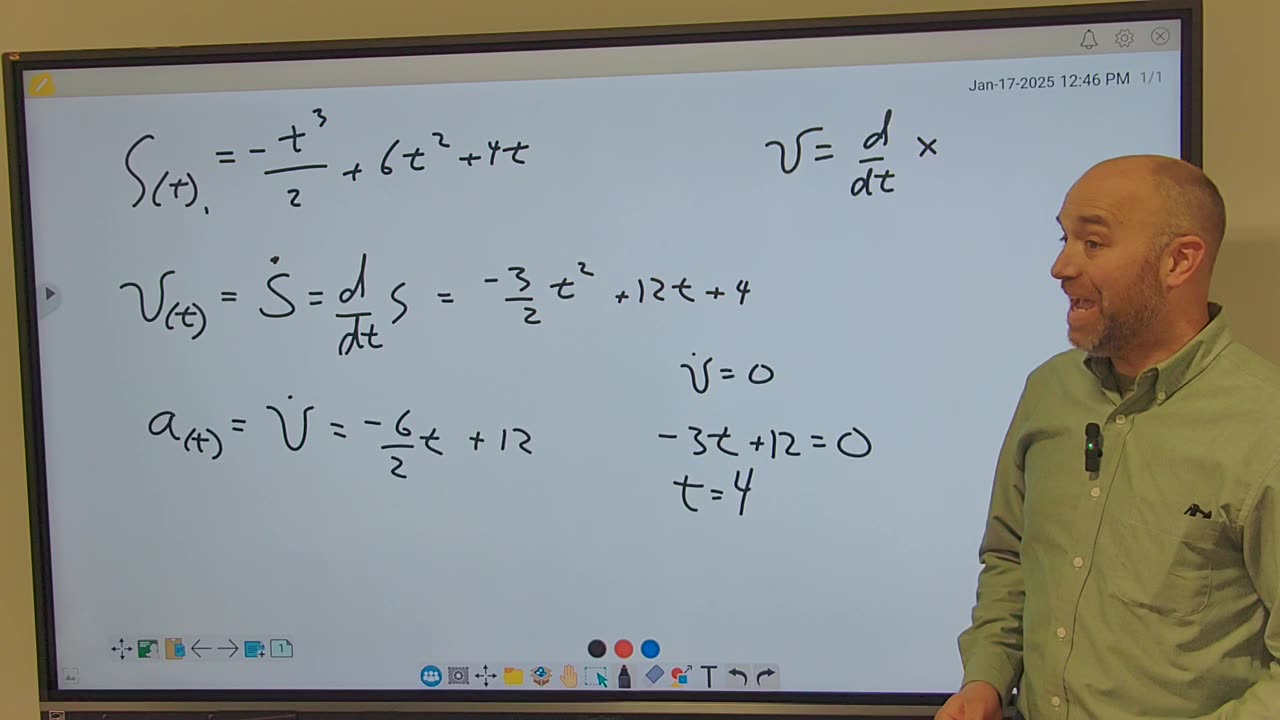 Jan-17-2025 12:46 PM 1/1
S(t) = -t³/2 + 6t² + 4t
v = d/dt x
v(t) = Ṡ = d/dt s = -3/2 t² + 12t + 4
v̇ = 0
a(t) = v̇ = -6/2 t + 12
-3t + 12 = 0
t = 4
1
T